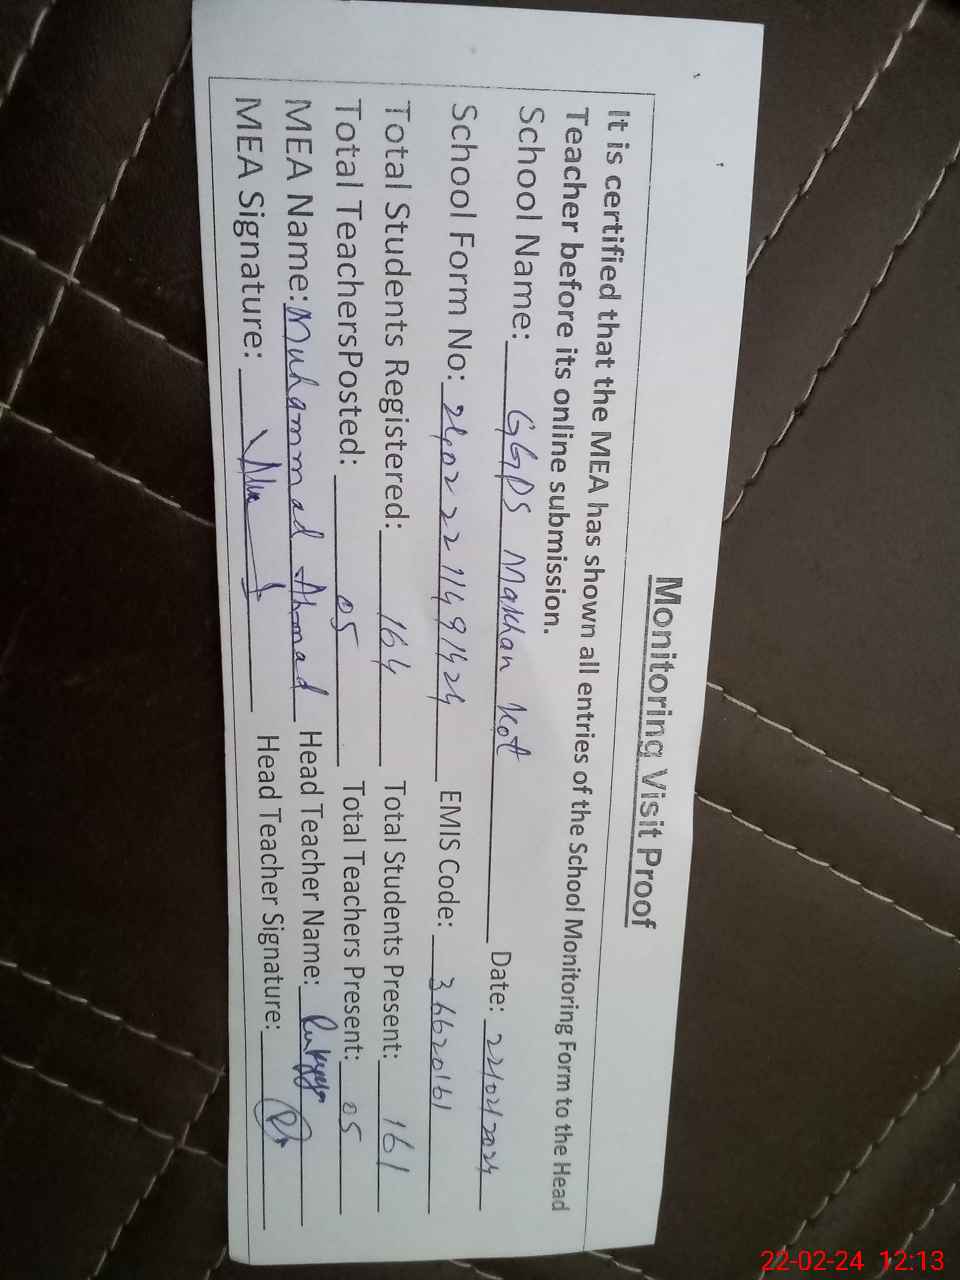 Monitoring Visit Proof
It is certified that the MEA has shown all entries of the School Monitoring Form to the Head
Teacher before its online submission.
School Name: GGPS Makhan Kot Date: 22/02/2024
School Form No: 24022211491424 EMIS Code: 36620161
Total Students Registered: 164 Total Students Present: 161
Total TeachersPosted: 05 Total Teachers Present: 05
MEA Name: Muhammad Ahmad Head Teacher Name:
MEA Signature: Head Teacher Signature:
22-02-24 12:13